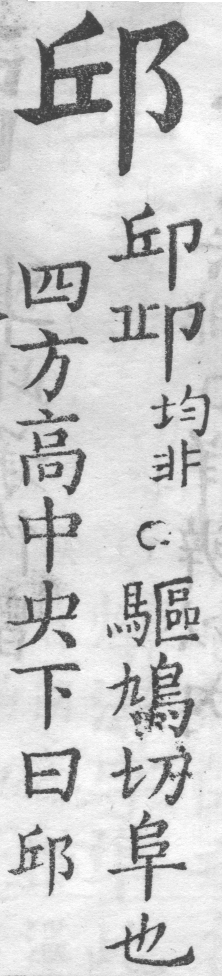 邱
均非○驅鳩切阜也
四方高中央下曰邱